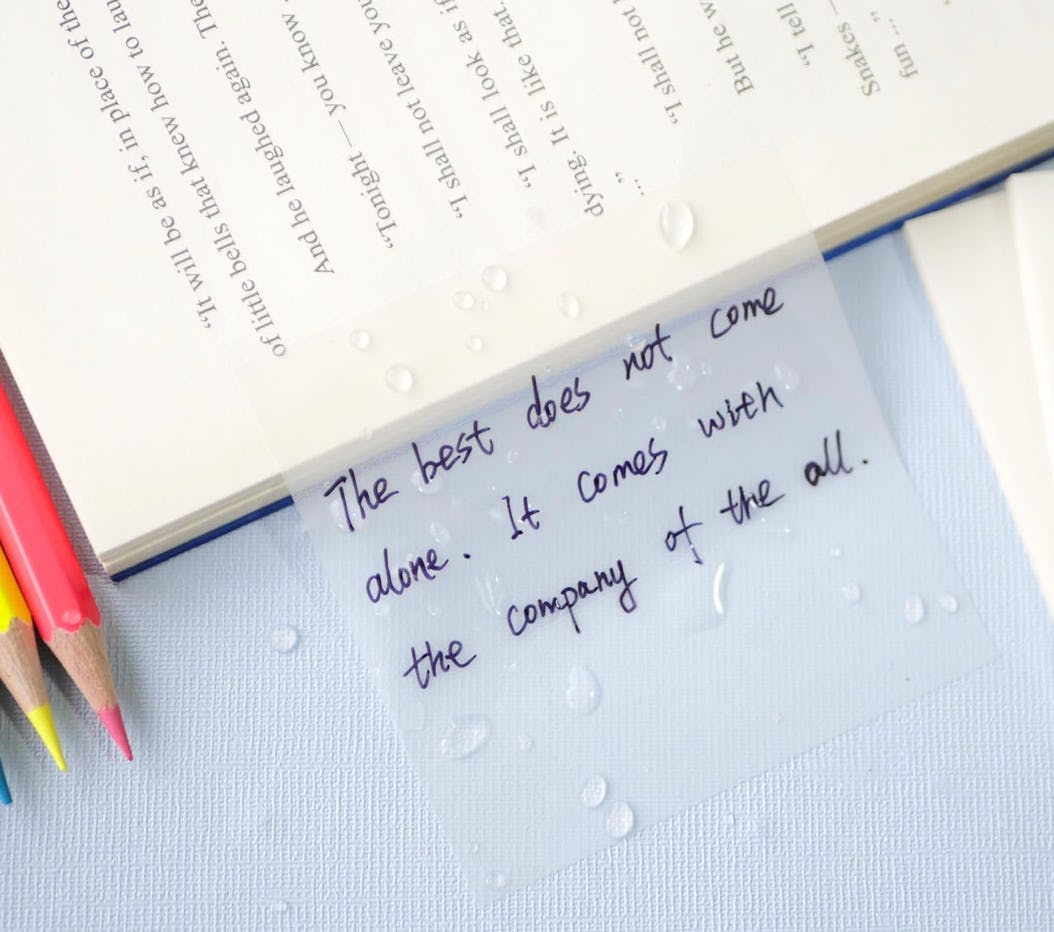 "It will be as if, in place of the
of little bells that knew how to lau
And he laughed again. The
"Tonight — you know
"I shall not leave you
"I shall look as if
dying. It is like that.
..."
"I shall not
But he w
"I tell
Snakes —
fun ..."
The best does not come
alone. It comes with
the company of the all.